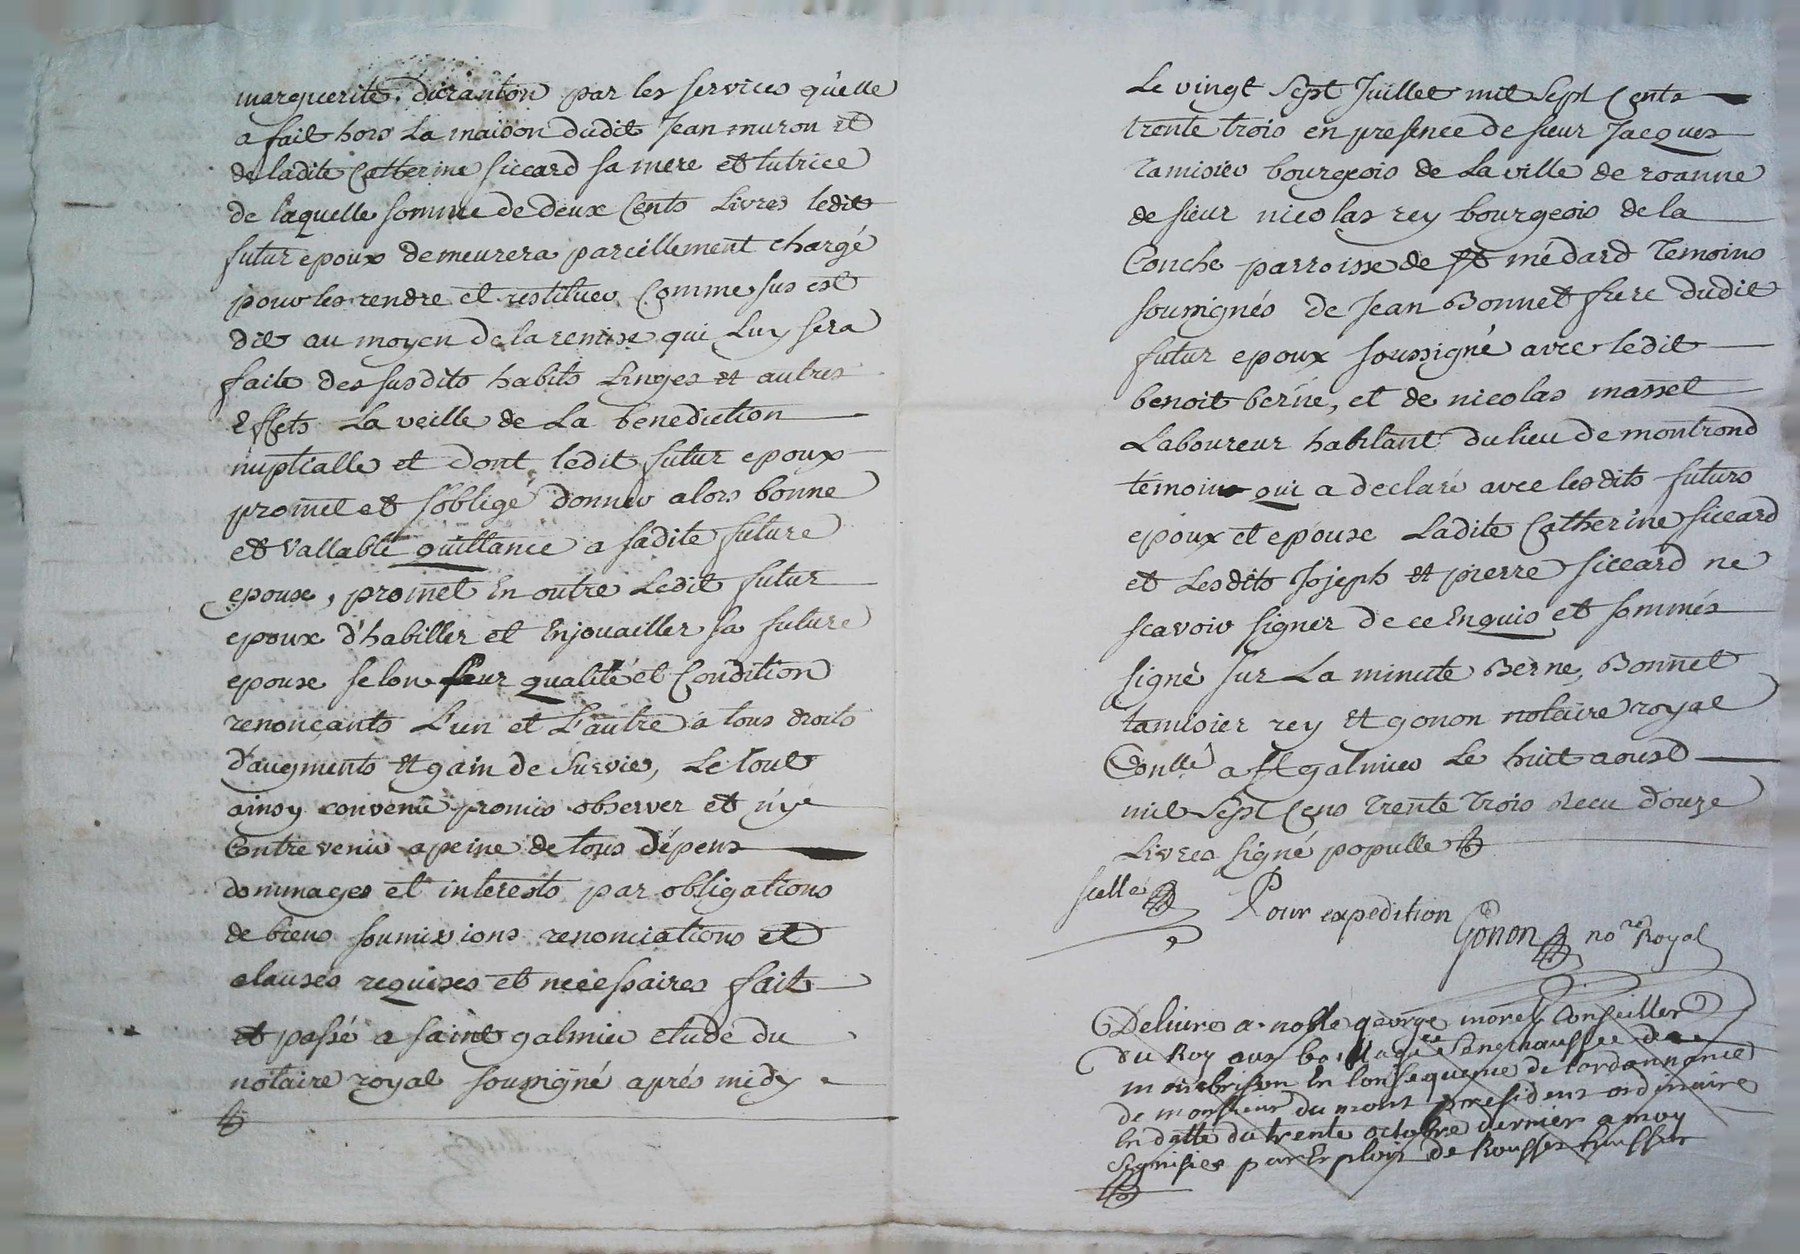 marguerite duranton par les services quelle
a fait hors La maison dudit Jean muron et
de ladite Catherine siccard sa mere et tutrice
de laquelle somme de deux Cents Livres ledit
futur epoux demeurera pareillement chargé
pour les rendre et restituer Comme sus est
dit au moyen de la remise qui Luy sera
faite des susdits habits Linges et autres
Effets La veille de La benediction
nuptialle et dont ledit futur epoux
promet et s'obligé donner alors bonne
et Vallable quittance a sadite future
epouse, promet En outre Ledit futur
epoux d'habiller et Enjouailler sa future
epouse selon leur qualité et Condition
renonçants L'un et L'autre a tous droits
d'augments et gain de Survie, Le tout
ainsy convenu promis observer et n'y
Contrevenir a peine de tous dépens
dommages et interests par obligations
de biens soumixions renonciations et
clauses requises et necessaires fait
et passé a saint galmier etude du
notaire royal soussigné aprés midy
Le vingt Sept Juillet mil Sept Cents
trente trois en presence de sieur Jacques
Tamisier bourgeois de La ville de roanne
de sieur nicolas rey bourgeois de la
Conche parroisse de st médard Temoins
soussignés de Jean Bonnet frere dudit
futur epoux soussigné avec ledit
benoit berne, et de nicolas masset
Laboureur habitant du lieu de montrond
témoins qui a declaré avec lesdits futurs
epoux et epouse Ladite Catherine siccard
et Lesdits Joseph et pierre siccard ne
scavoir signer de ce Enquis et sommés
signé sur La minute Berne, Bonnet
tamisier rey et gonon notaire royal
Conllé a st galmier Le huit aoust
mil Sept Cens Trente Trois Recu douze
Livres signé populle
scellé
Pour expedition
Gonon no.re Royal
Delivré a noble george morel Conseiller
du Roy aux bailliage et Senechaussée de
montbrison En Consequence de l'ordonnance
de monsieur du mont president ordinaire
En datte du trente octobre dernier a moy
Signifiée par Exploit de Rousset huissier